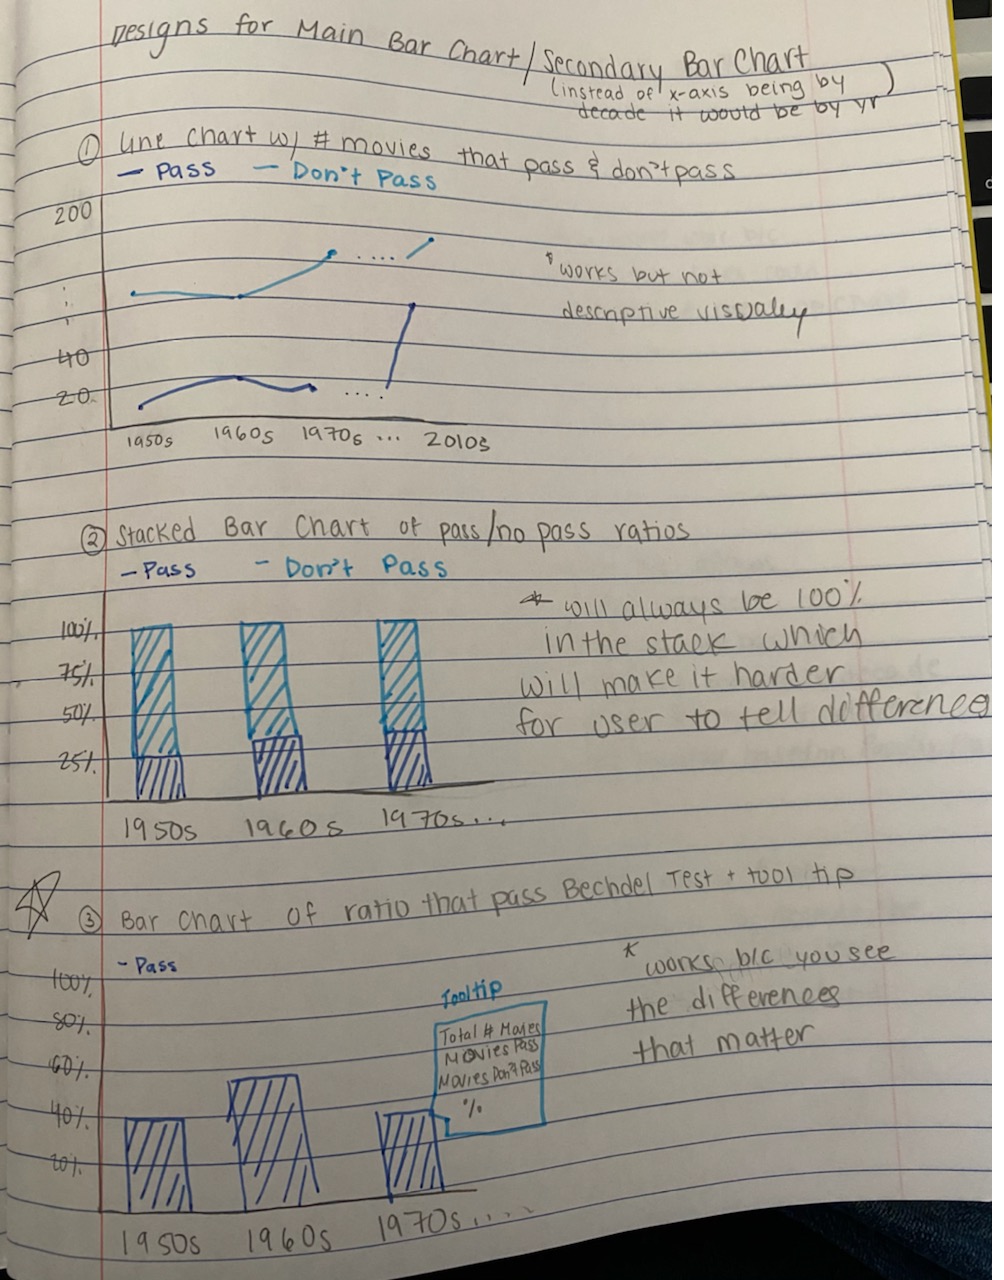 Designs for Main Bar Chart/Secondary Bar Chart
(instead of x-axis being by
decade it would be by yr)
① Line Chart w/ # movies that pass & don't pass
— Pass — Don't Pass
200
40
20
1950s 1960s 1970s ... 2010s
*works but not
descriptive visualy
② Stacked Bar Chart of pass/no pass ratios
— Pass — Don't Pass
100%
75%
50%
25%
1950s 1960s 1970s...
* will always be 100%
in the stack which
will make it harder
for user to tell difference
③ Bar Chart of ratio that pass Bechdel Test + tool tip
- Pass
100%
80%
60%
40%
20%
1950s 1960s 1970s....
Tooltip
Total # Movies
Movies Pass
Movies Don't Pass
%
* works b/c you see
the differences
that matter